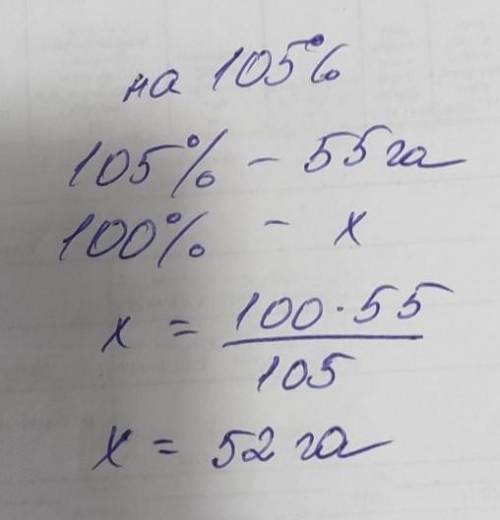 на 105%
105% - 55 га
100% - х
х = 100·55
105
х = 52 га